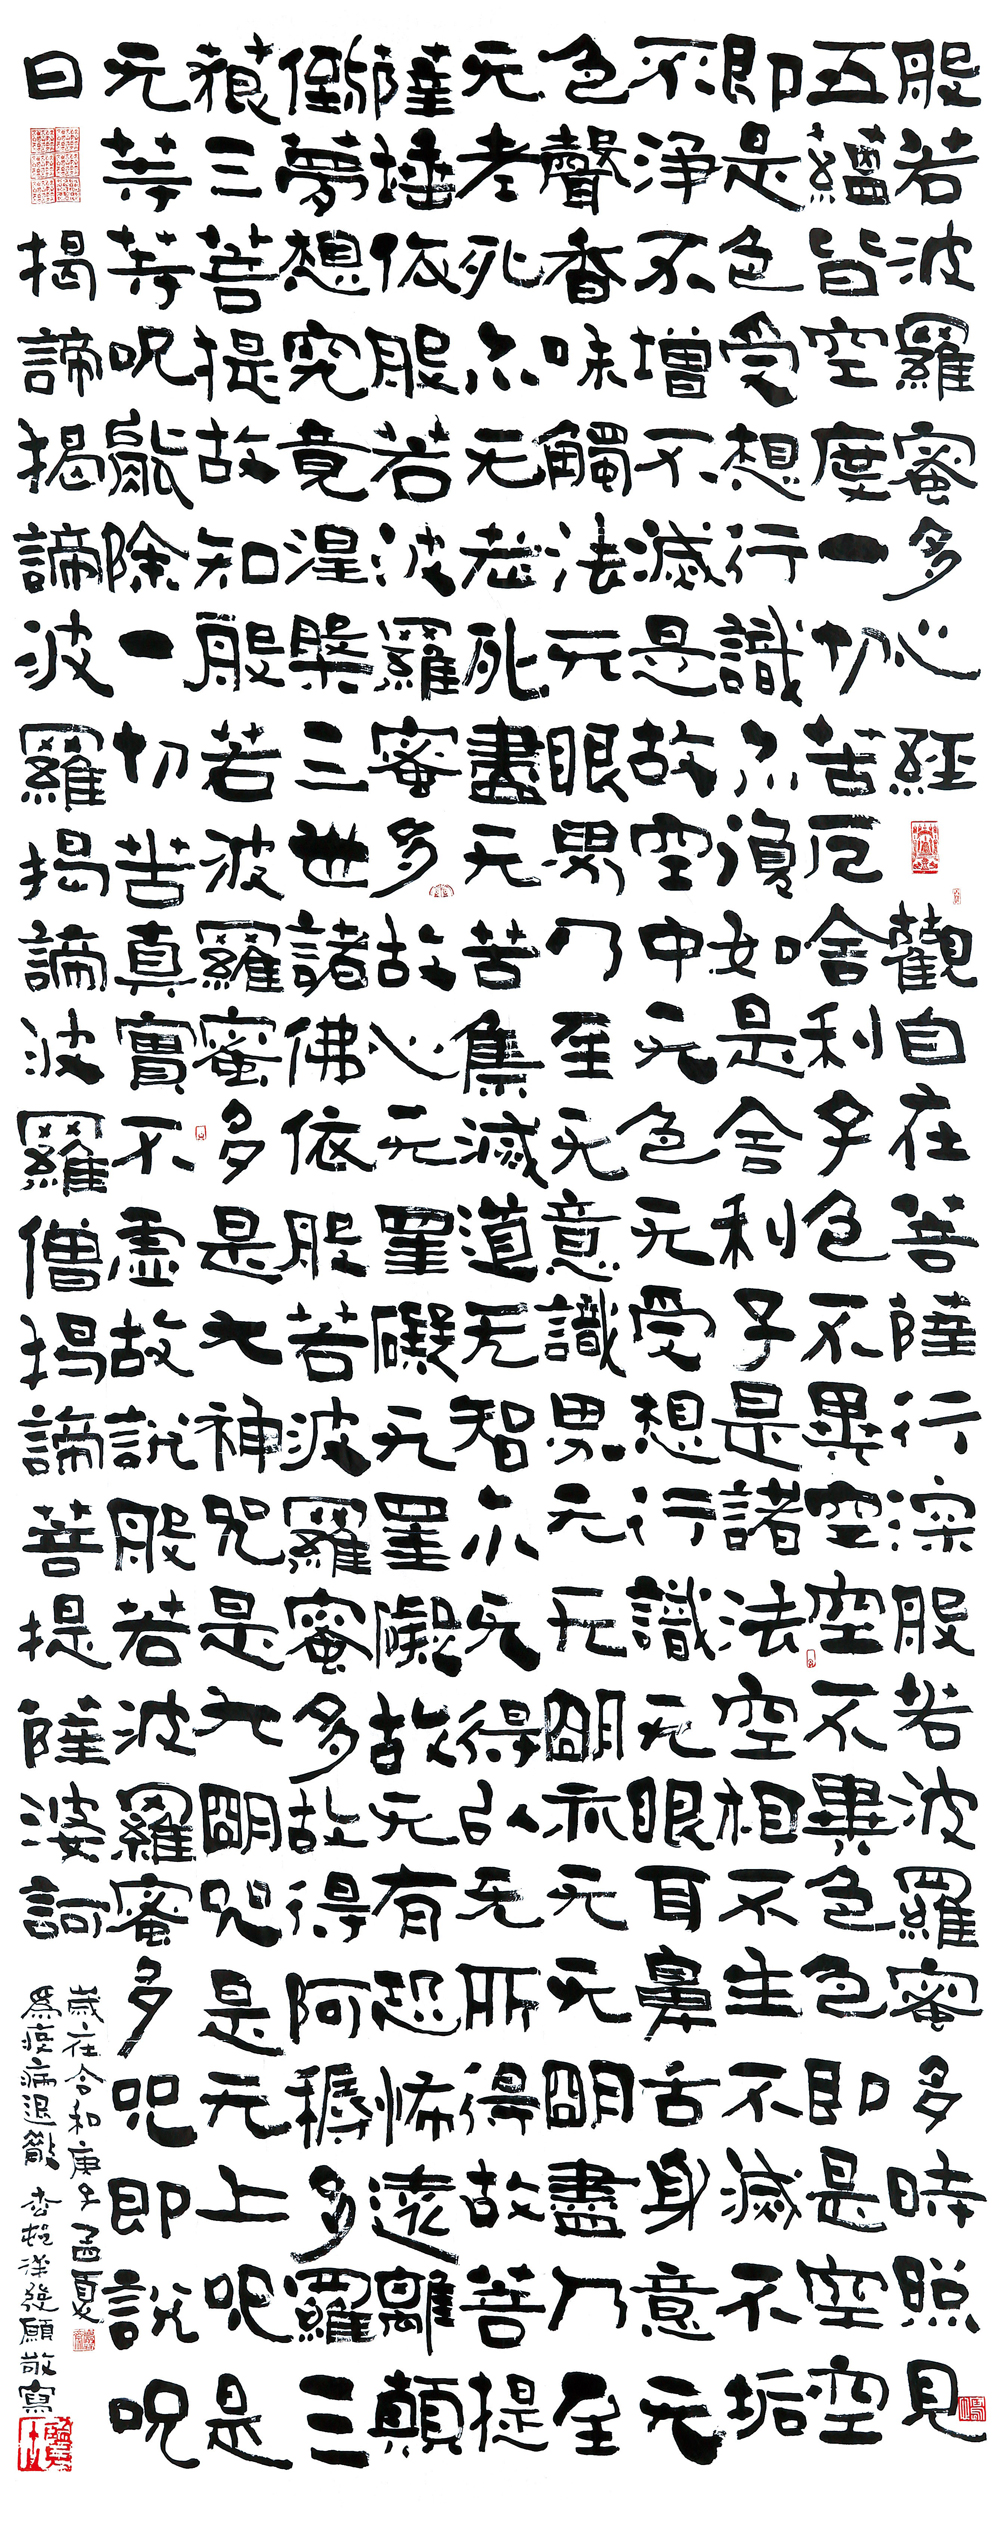 般若波羅蜜多心經 觀自在菩薩行深般若波羅蜜多時照見
五蘊皆空度一切苦厄舍利子色不異空空不異色色即是空空
即是色受想行識亦復如是舍利子是諸法空相不生不滅不垢
不淨不增不減是故空中无色无受想行識无眼耳鼻舌身意无
色聲香味觸法无眼界乃至无意識界无无明亦无无明盡乃至
无老死亦无老死盡无苦集滅道无智亦无得以无所得故菩提
薩埵依般若波羅蜜多故心无罣礙无罣礙故无有恐怖遠離顛
倒夢想究竟涅槃三世諸佛依般若波羅蜜多故得阿耨多羅三
藐三菩提故知般若波羅蜜多是大神咒是大明咒是无上咒是
无等等咒能除一切苦真實不虛故說般若波羅蜜多咒即說咒
曰 揭諦揭諦波羅揭諦波羅僧揭諦菩提薩婆訶
歲在令和庚子孟夏
為疫病退散 發願敬寫